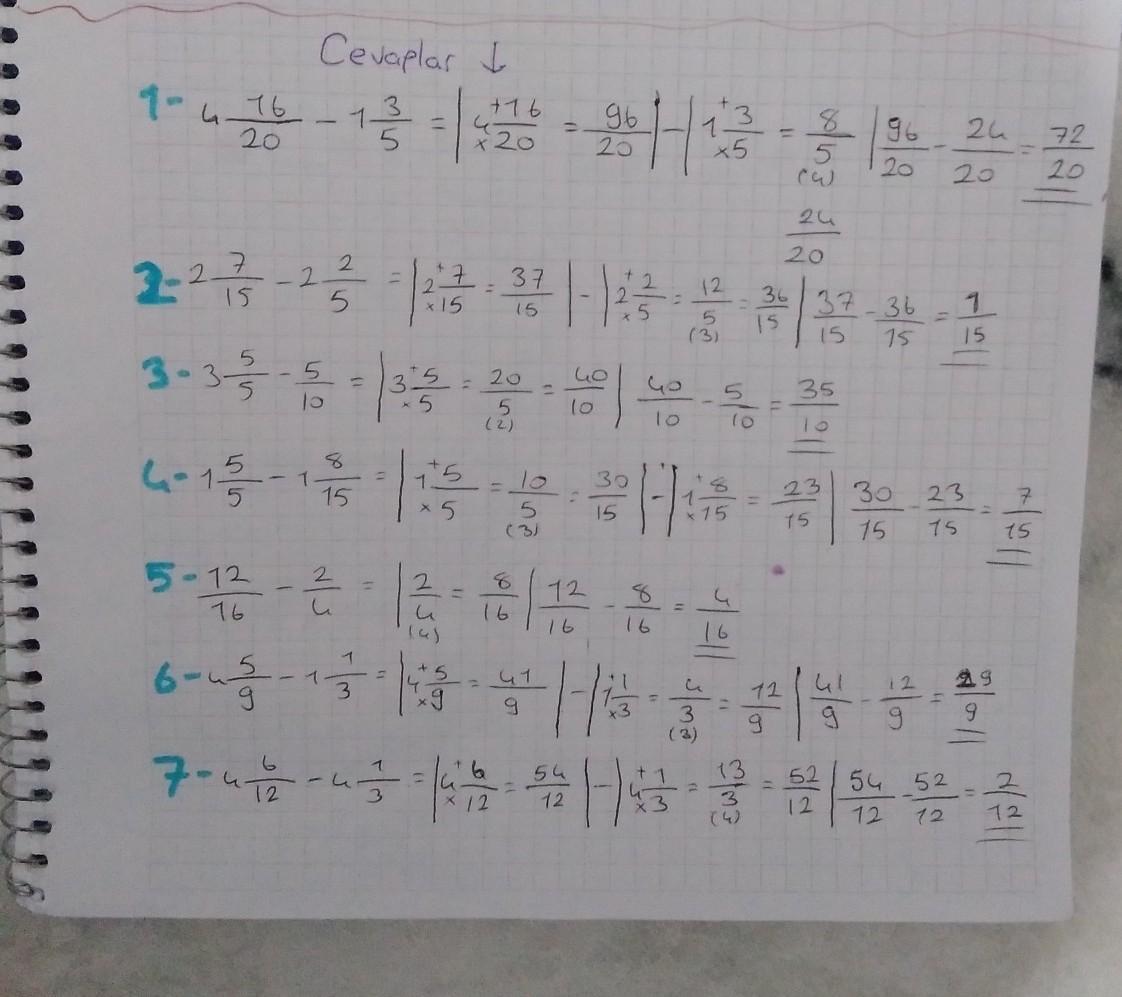 Cevaplar ↓
1- 4 16/20 - 1 3/5 = | 4 +16/×20 = 96/20 | - | 1 +3/×5 = 8/5 (4) | 96/20 - 24/20 = 72/20
24/20
2- 2 7/15 - 2 2/5 = | 2 +7/×15 = 37/15 | - | 2 +2/×5 = 12/5 (3) = 36/15 | 37/15 - 36/15 = 1/15
3- 3 5/5 - 5/10 = | 3 +5/×5 = 20/5 (2) = 40/10 | 40/10 - 5/10 = 35/10
4- 1 5/5 - 1 8/15 = | 1 +5/×5 = 10/5 (3) = 30/15 | - | 1 +8/×15 = 23/15 | 30/15 - 23/15 = 7/15
5- 12/16 - 2/4 = | 2/4 (4) = 8/16 | 12/16 - 8/16 = 4/16
6- 4 5/9 - 1 1/3 = | 4 +5/×9 = 41/9 | - | 1 +1/×3 = 4/3 (3) = 12/9 | 41/9 - 12/9 = 29/9
7- 4 6/12 - 4 1/3 = | 4 +6/×12 = 54/12 | - | 4 +1/×3 = 13/3 (4) = 52/12 | 54/12 - 52/12 = 2/12